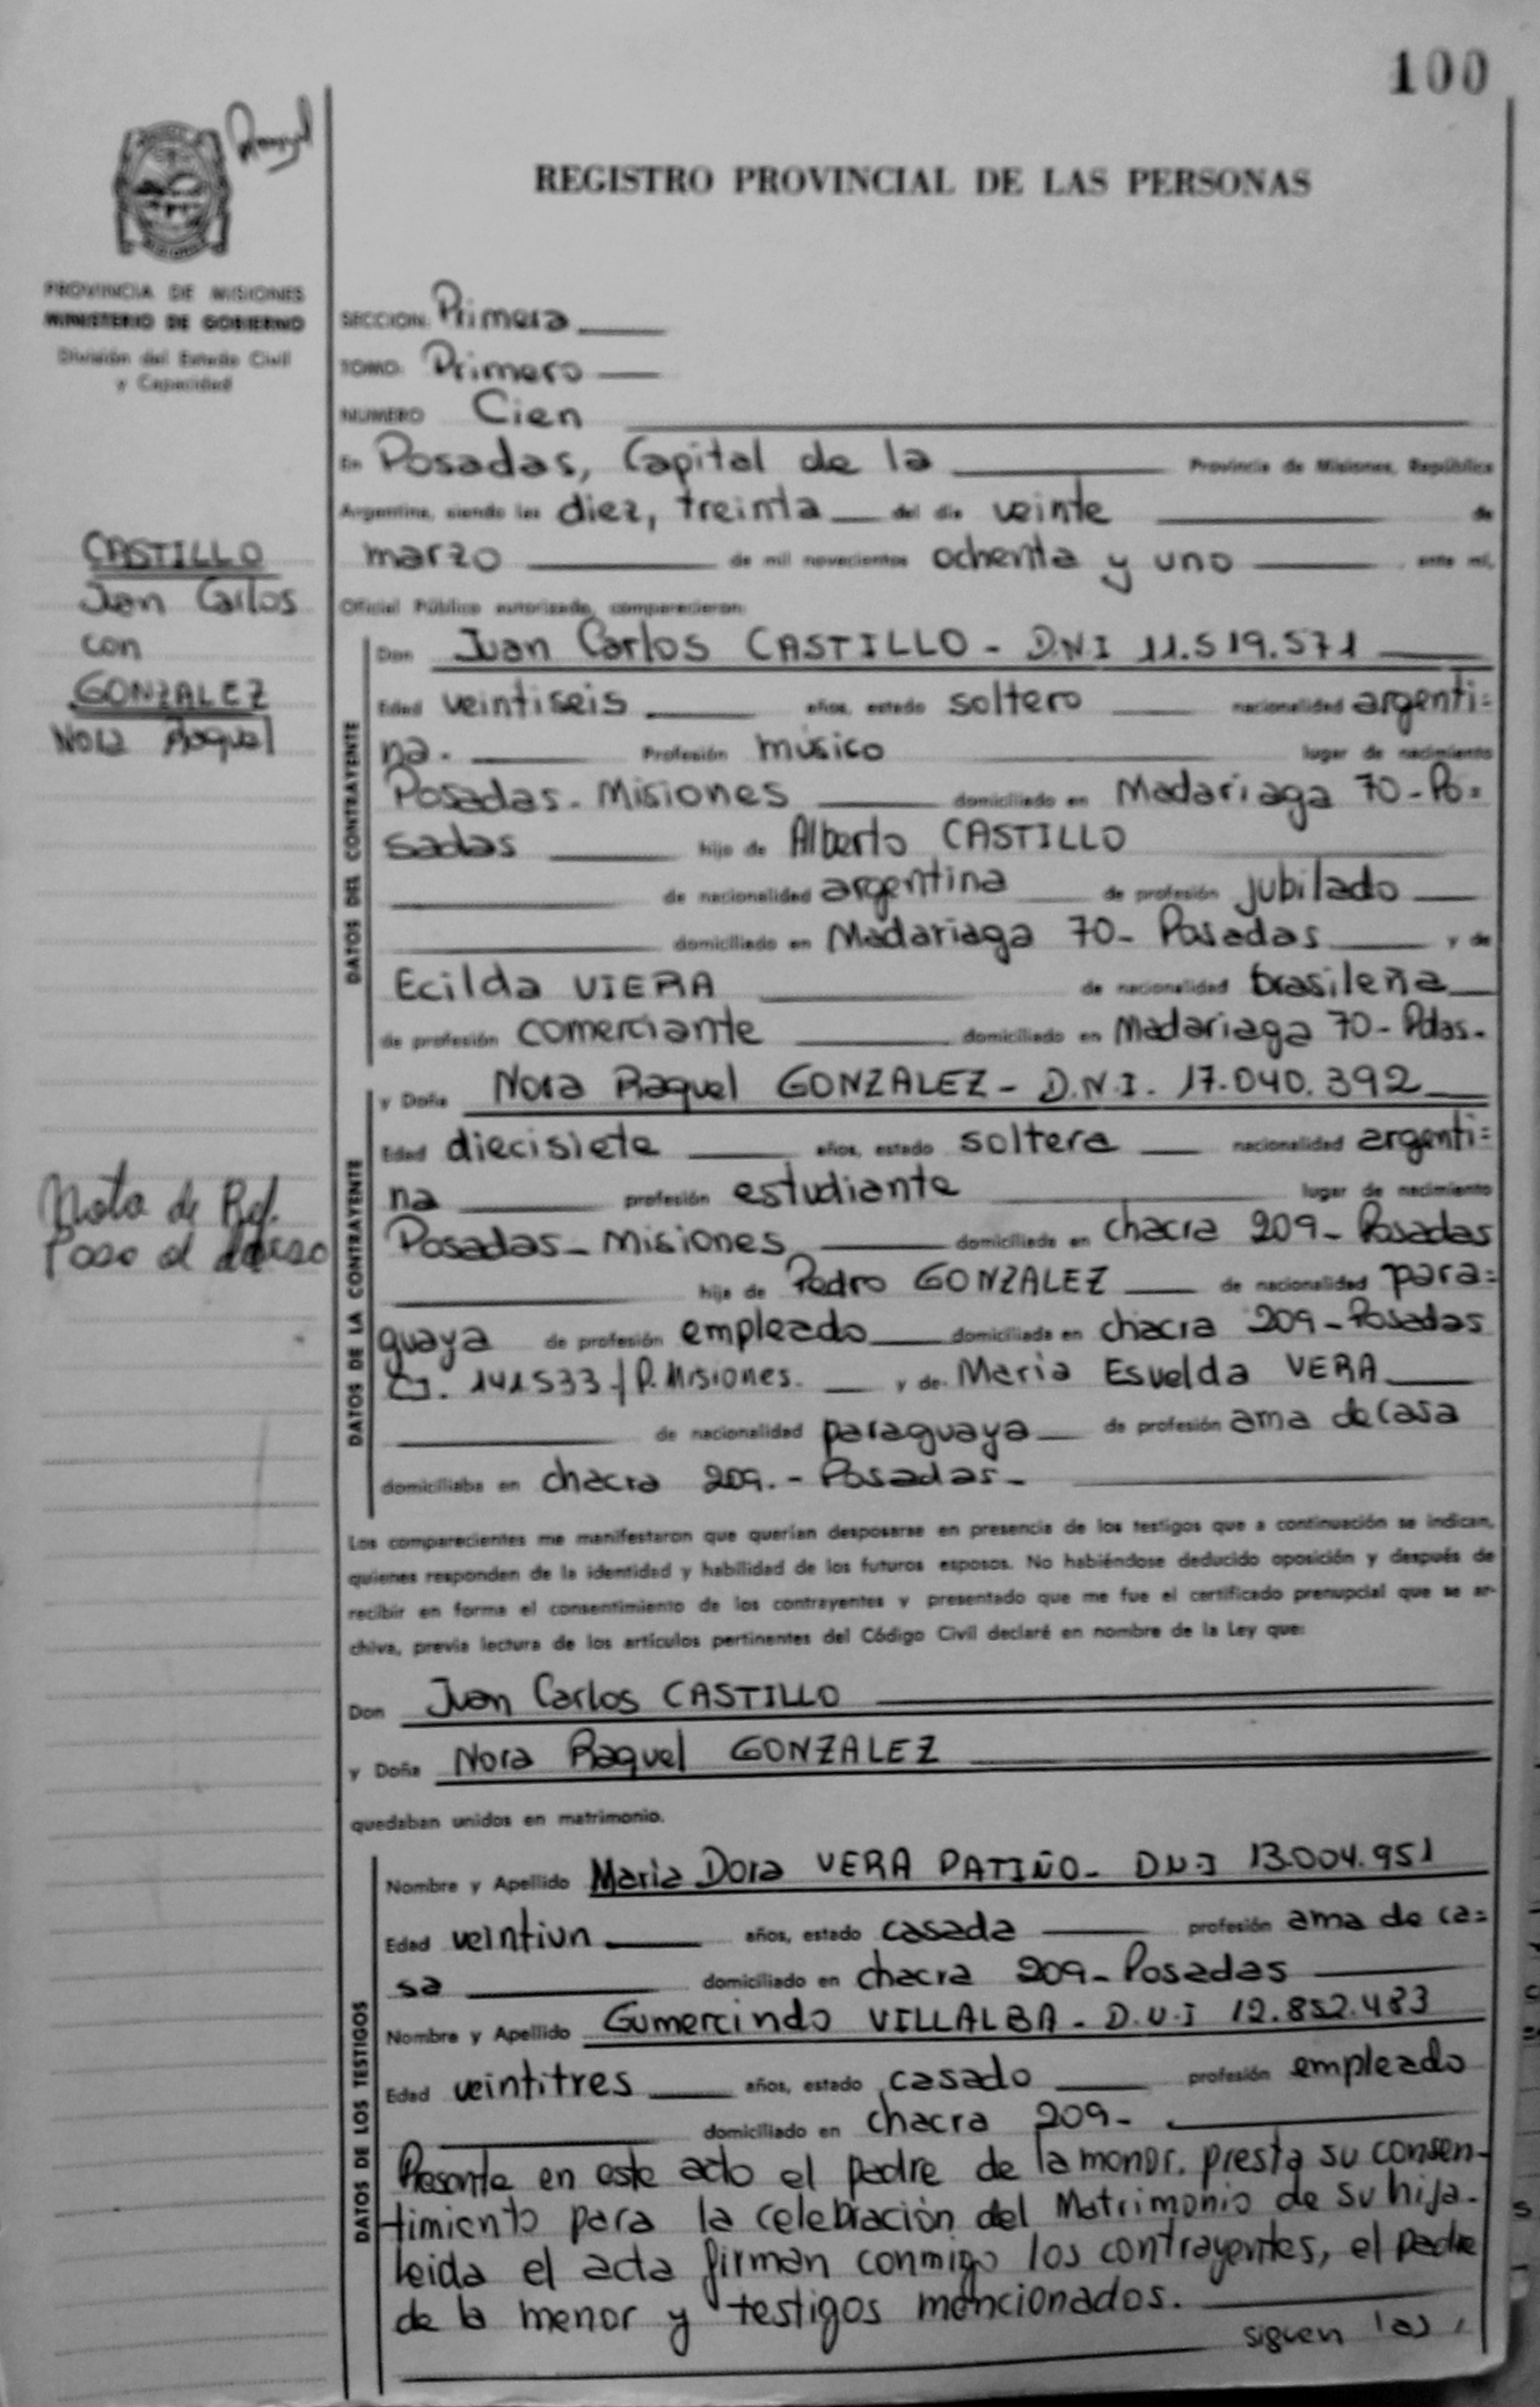 100
REGISTRO PROVINCIAL DE LAS PERSONAS
PROVINCIA DE MISIONES
MINISTERIO DE GOBIERNO
División del Estado Civil
y Capacidad
SECCION: Primera
TOMO: Primero
NUMERO Cien
En Posadas, Capital de la Provincia de Misiones, República
Argentina, siendo las diez, treinta del día veinte de
marzo de mil novecientos ochenta y uno ante mí,
Oficial Público autorizado, comparecieron:
CASTILLO
Juan Carlos
con
GONZALEZ
Nora Raquel
DATOS DEL CONTRAYENTE
Don Juan Carlos CASTILLO - D.N.I 11.519.571
Edad veintiseis años, estado soltero nacionalidad argenti=
na. Profesión músico lugar de nacimiento
Posadas - Misiones domiciliado en Madariaga 70 - Po=
sadas hijo de Alberto CASTILLO
de nacionalidad argentina de profesión jubilado
domiciliado en Madariaga 70 - Posadas y de
Ecilda VIERA de nacionalidad brasileña
de profesión comerciante domiciliado en Madariaga 70 - Pdas.
DATOS DE LA CONTRAYENTE
y Doña Nora Raquel GONZALEZ - D.N.I. 17.040.392
Edad diecisiete años, estado soltera nacionalidad argenti=
na profesión estudiante lugar de nacimiento
Posadas - Misiones domiciliada en chacra 209 - Posadas
hija de Pedro GONZALEZ de nacionalidad para=
guaya de profesión empleado domiciliado en chacra 209 - Posadas
C.I. 141533 / P. Misiones. y de Maria Esvelda VERA
de nacionalidad paraguaya de profesión ama de casa
domiciliaba en chacra 209. - Posadas -
Nota de Ref.
Paso al dorso
Los comparecientes me manifestaron que querían desposarse en presencia de los testigos que a continuación se indican,
quienes responden de la identidad y habilidad de los futuros esposos. No habiéndose deducido oposición y después de
recibir en forma el consentimiento de los contrayentes y presentado que me fue el certificado prenupcial que se ar-
chiva, previa lectura de los artículos pertinentes del Código Civil declaré en nombre de la Ley que:
Don Juan Carlos CASTILLO
y Doña Nora Raquel GONZALEZ
quedaban unidos en matrimonio.
DATOS DE LOS TESTIGOS
Nombre y Apellido Maria Dora VERA PATIÑO - D.N.I 13.004.951
Edad veintiun años, estado casada profesión ama de ca=
sa domiciliado en chacra 209 - Posadas
Nombre y Apellido Gumercindo VILLALBA - D.N.I 12.852.483
Edad veintitres años, estado casado profesión empleado
domiciliado en chacra 209 -
Presente en este acto el padre de la menor. presta su consen-
timiento para la celebración del Matrimonio de su hija.
leida el acta firman conmigo los contrayentes, el padre
de la menor y testigos mencionados.
siguen las